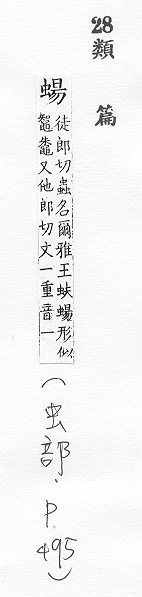 28
類篇
蝪
徒郎切蟲名爾雅王蚨蝪形似
鼅鼄又他郎切文一重音一
(虫部、P.495)